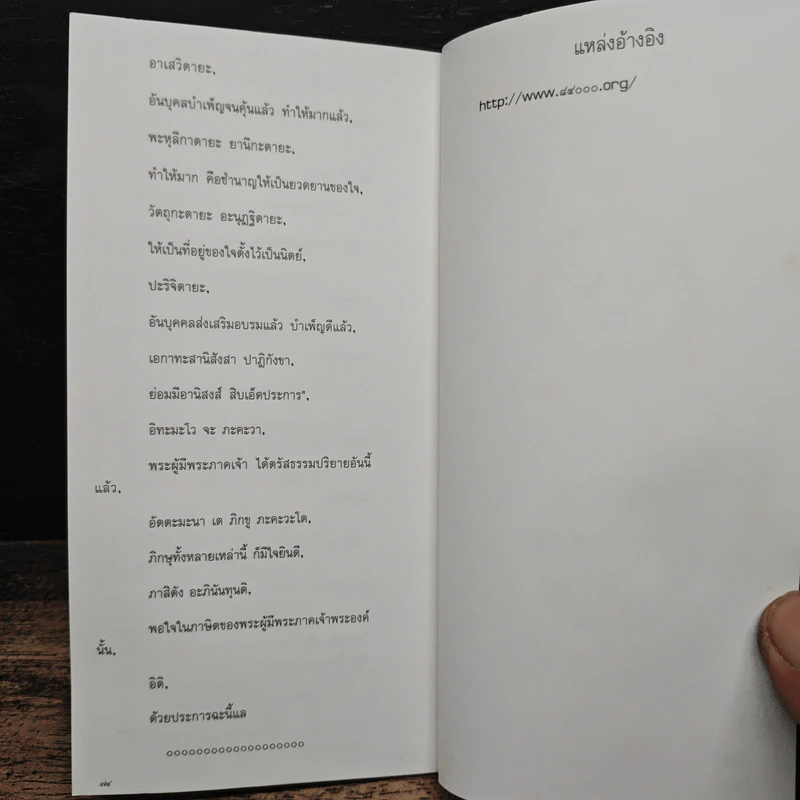 อาเสวิตายะ,
อันบุคลบำเพ็ญจนคุ้นแล้ว ทำให้มากแล้ว,
พะหุลีกาตายะ ยานีกะตายะ,
ทำให้มาก คือชำนาญให้เป็นยวดยานของใจ,
วัตถุกะตายะ อะนุฏฐิตายะ,
ให้เป็นที่อยู่ของใจตั้งไว้เป็นนิตย์,
ปะริจิตายะ,
อันบุคคลส่งเสริมอบรมแล้ว บำเพ็ญดีแล้ว,
เอกาทะสานิสังสา ปาฏิกังขา,
ย่อมมีอานิสงส์ สิบเอ็ดประการ",
อิทะมะโว จะ ภะคะวา,
พระผู้มีพระภาคเจ้า ได้ตรัสธรรมปริยายอันนี้
แล้ว,
อัตตะมะนา เต ภิกขู ภะคะวะโต,
ภิกษุทั้งหลายเหล่านี้ ก็มีใจยินดี,
ภาสิตัง อะภินันทุนติ,
พอใจในภาษิตของพระผู้มีพระภาคเจ้าพระองค์
นั้น,
อิติ,
ด้วยประการฉะนี้แล
แหล่งอ้างอิง
http://www.๘๔๐๐๐.org/